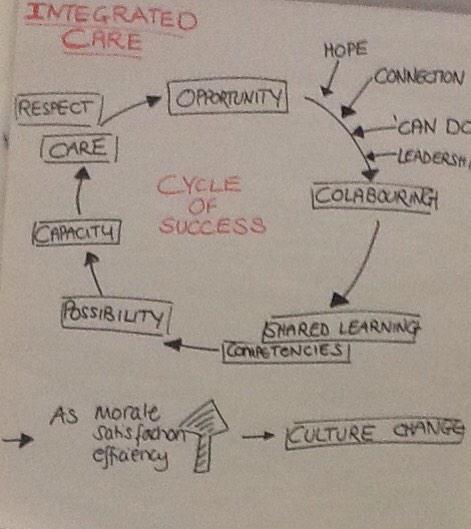 INTEGRATED
CARE
HOPE
CONNECTION
'CAN DO
LEADERSH
OPPORTUNITY
RESPECT
CARE
CYCLE
OF
SUCCESS
COLABOURING
CAPACITY
POSSIBILITY
SHARED LEARNING
COMPETENCIES
AS Morale
satisfaction
efficiency
CULTURE CHANGE